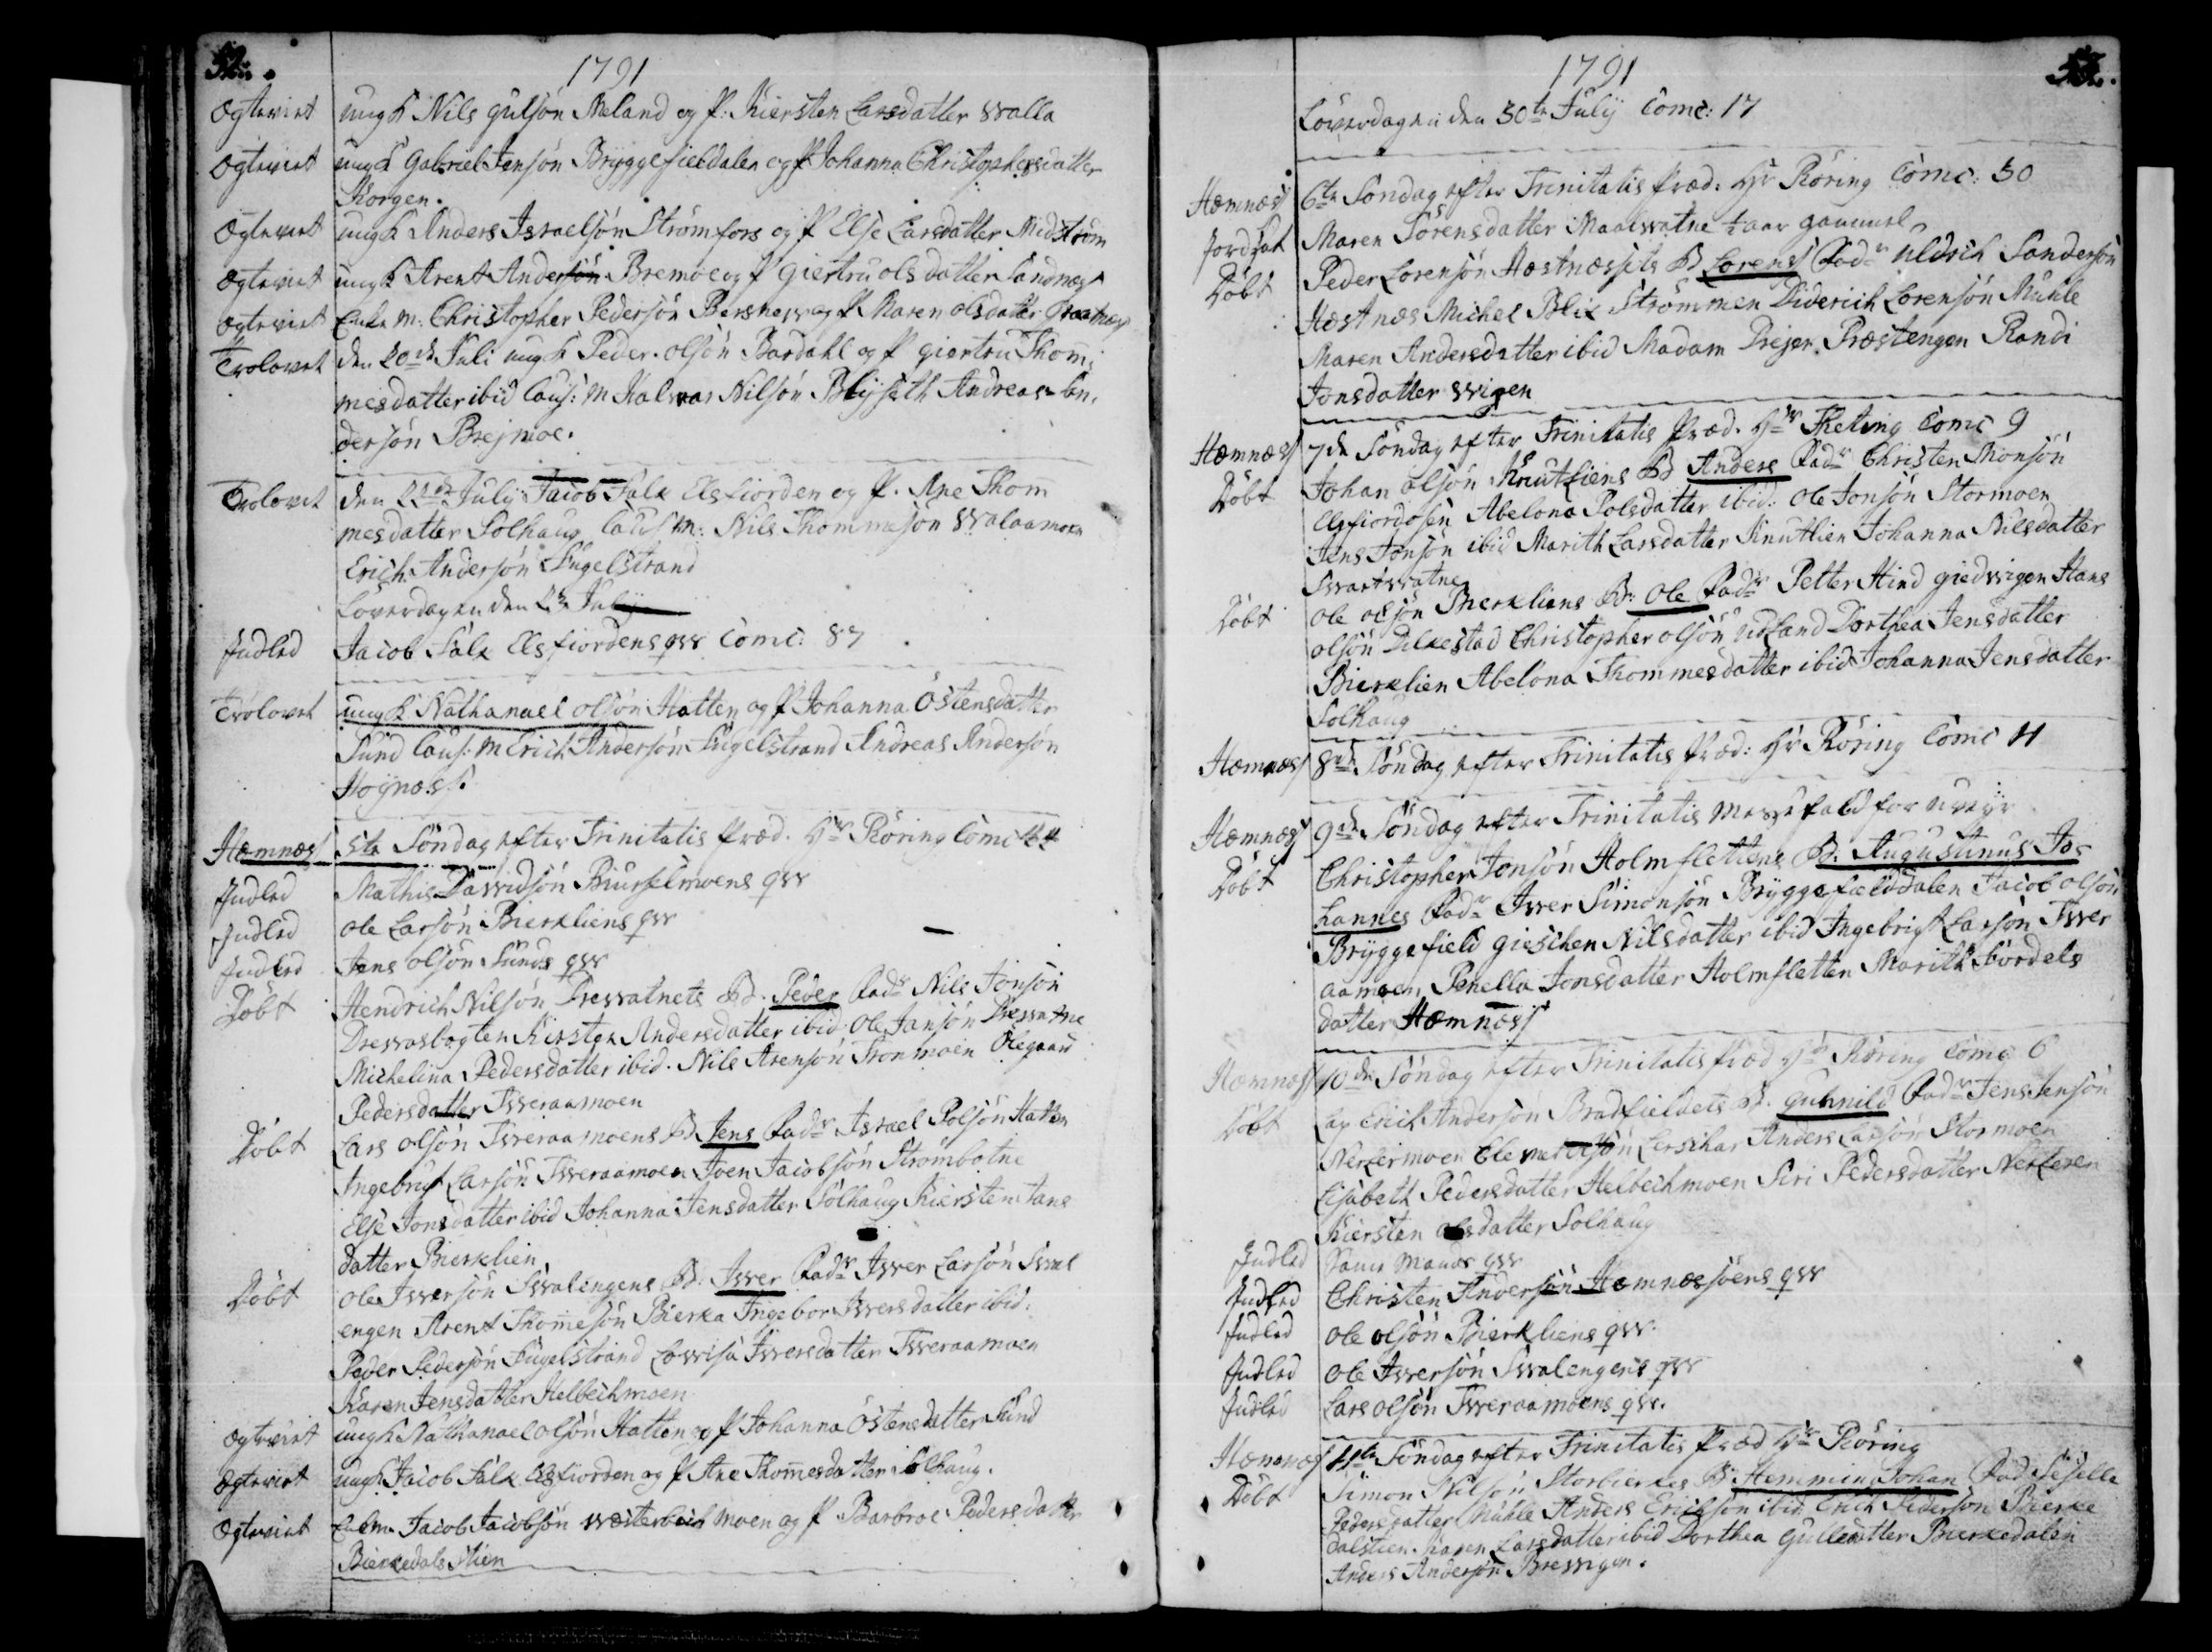 52.
1791
Ægteviet ungk Nils Gulsøn Meland og P: Kiersten Larsdatter Walla
Ægteviet ungk Gabriel Jensøn Bryggefieldalen og P Johanna Christophersdatter
Korgen.
Ægteviet ungk Anders Israelsøn Strømfors og P Else Larsdatter Midstrøm
Ægteviet ungk Arent Andersøn Bremoe og P Giertru Olsdatter Sandnæss
Ægteviet Enkem: Christopher Pedersøn og P Maren Olsdatter
Trolovet den 20de Juli ungk Peder Olsøn Bardahl og P Giertru Thom:
mesdatter ibid Caus: M Halvor Nilsøn Blyseth Andreas An:
dersøn Brejmoe.
Trolovet den July Jacob Falk Elsfiorden og P. Ane Thom
mesdatter Solhaug Caus M: Nils Thommesøn Walaamoen
Erich Andersøn Fugelstrand
Løverdagen den July
Indled Jacob Falk Elsfiordens qvv Comc: 87
Trolovet ungk Nathanael Olsøn Hatten og P Johanna Østensdatter
Sund Caus: M Erich Andersøn Fugelstrand Andreas Andersøn
Høynæss.
Hemnæss 5te Søndag efter Trinitatis Præd. Hr Røring Comc
Indled Mathis Davidsøn Biurselmoens qvv
Indled Ole Larsøn Bierkliens qvv
Indled Jens Olsøn Sunds qvv
Døbt Hendrich Nilsøn Dresvatnets B. Peder Fadr Nils Jonsøn
Dresvasbogten Kirsten Andersdatter ibid Ole Jansøn Dresvatne
Michelina Pedersdatter ibid. Nils Arensøn Tronmoen Olegaard
Pedersdatter Tveraamoen
Døbt Lars Olsøn Tveraamoens B Jens Fadr Israel Polsøn Hatten
Ingebrigt Larsøn Tveraamoen Joen Jacobsøn Strømbotne
Else Jonsdatter ibid Johanna Jensdatter Solhaug Kiersten Jans
datter Bierklien
Døbt Ole Iversøn Svalengens B: Iver Fadr Iver Larsøn Sval
engen Arent Thomesøn Bierka Ingebor Iversdatter ibid:
Peder Pedersøn Fugelstrand Lovisa Iversdatter Tveraamoen
Karen Jensdatter Helbechmoen
Ægteviet ungk Nathanael Olsøn Hatten og P Johanna Østensdatter Sund
Ægteviet ungk Jacob Falk Elsfiorden og P Ane Thomesdatter Solhaug.
Ægteviet Enkem Jacob Jacobsøn Westerbechmoen og P Barbroe Pedersdatter
Bierkedals Stien
1791
Løverdagen den 30te July Comc: 17
Hemnæss 6te Søndag efter Trinitatis Præd: Hr Røring Comc: 30
Jordsat Maren Sørensdatter Maalvatne ½ aar gammel
Døbt Peder Lorensøn Hæstnæssets B Lorens Fadr Uldrich Sandersøn
Hæstnæs Michel Blix Strømmen Diderich Lorensøn Mühle
Maren Andersdatter ibid Madam Prejer Præstengen Randi
Jonsdatter Wigen
Hemnæss 7de Søndag efter Trinitatis Præd. Hr Theting Comc 9
Døbt Johan Olsøn Knutliens B Anders Fadr Christen Monsøn
Elsfiordosen Abelona Polsdatter ibid: Ole Jonsøn Stormoen
Jens Jonsøn ibid Marith Larsdatter Knutlien Johanna Nilsdatter
Svartvatne
Døbt Ole Olsøn Bierkliens B: Ole Fadr Petter Hind Giedvigen Hans
Olsøn Dilkestad Christopher Olsøn Udland Dorthea Jensdatter
Bierklien Abelona Thommesdatter ibid Johanna Jensdatter
Solhaug
Hemnæss 8de Søndag efter Trinitatis Præd: Hr Røring Comc 11
Hemnæss 9de Søndag efter Trinitatis Messefald for uveyr
Døbt Christopher Jonsøn Holmslettens B. Augustinus Jo-
hannes Fadr Iver Simonsøn Bryggefielddalen Jacob Olsøn
Bryggefield Gieschen Nilsdatter ibid Ingebrigt Larsøn Tver
aamoen Penella Jonsdatter Holmsletten Marith Tordels
datter Hemnæss
Hemnæss 10de Søndag efter Trinitatis Præd Hr Røring Comc 6
Døbt Lap Erich Andersøn Bradfieldets B. Guhnild Fadr Jens Jensøn
Nerlermoen Elemer Olsøn Anders Larsøn Stormoen
Lisabeth Pedersdatter Helbechmoen Siri Pedersdatter Nerleren
Kiersten Olsdatter Solhaug
Indled Same Mands qvv
Indled Christen Andersøn Hemnæssøens qvv
Indled Ole Olsøn Bierkliens qvv.
Indled Ole Iversøn Svalengens qvv
Indled Lars Olsøn Tveraamoens qvv.
Hemnæss 11te Søndag efter Trinitatis Præd Hr Røring
Døbt Simon Nilsøn Storbierkes B Hemming Johan Fadr Siselle
Pedersdatter Mühle Anders Erichsøn ibid Erich Pedersøn Bierke
dalstien. Karen Larsdatter ibid Dorthea Gullesdatter Bierkedalen
Anders Andersøn Bresvigen.